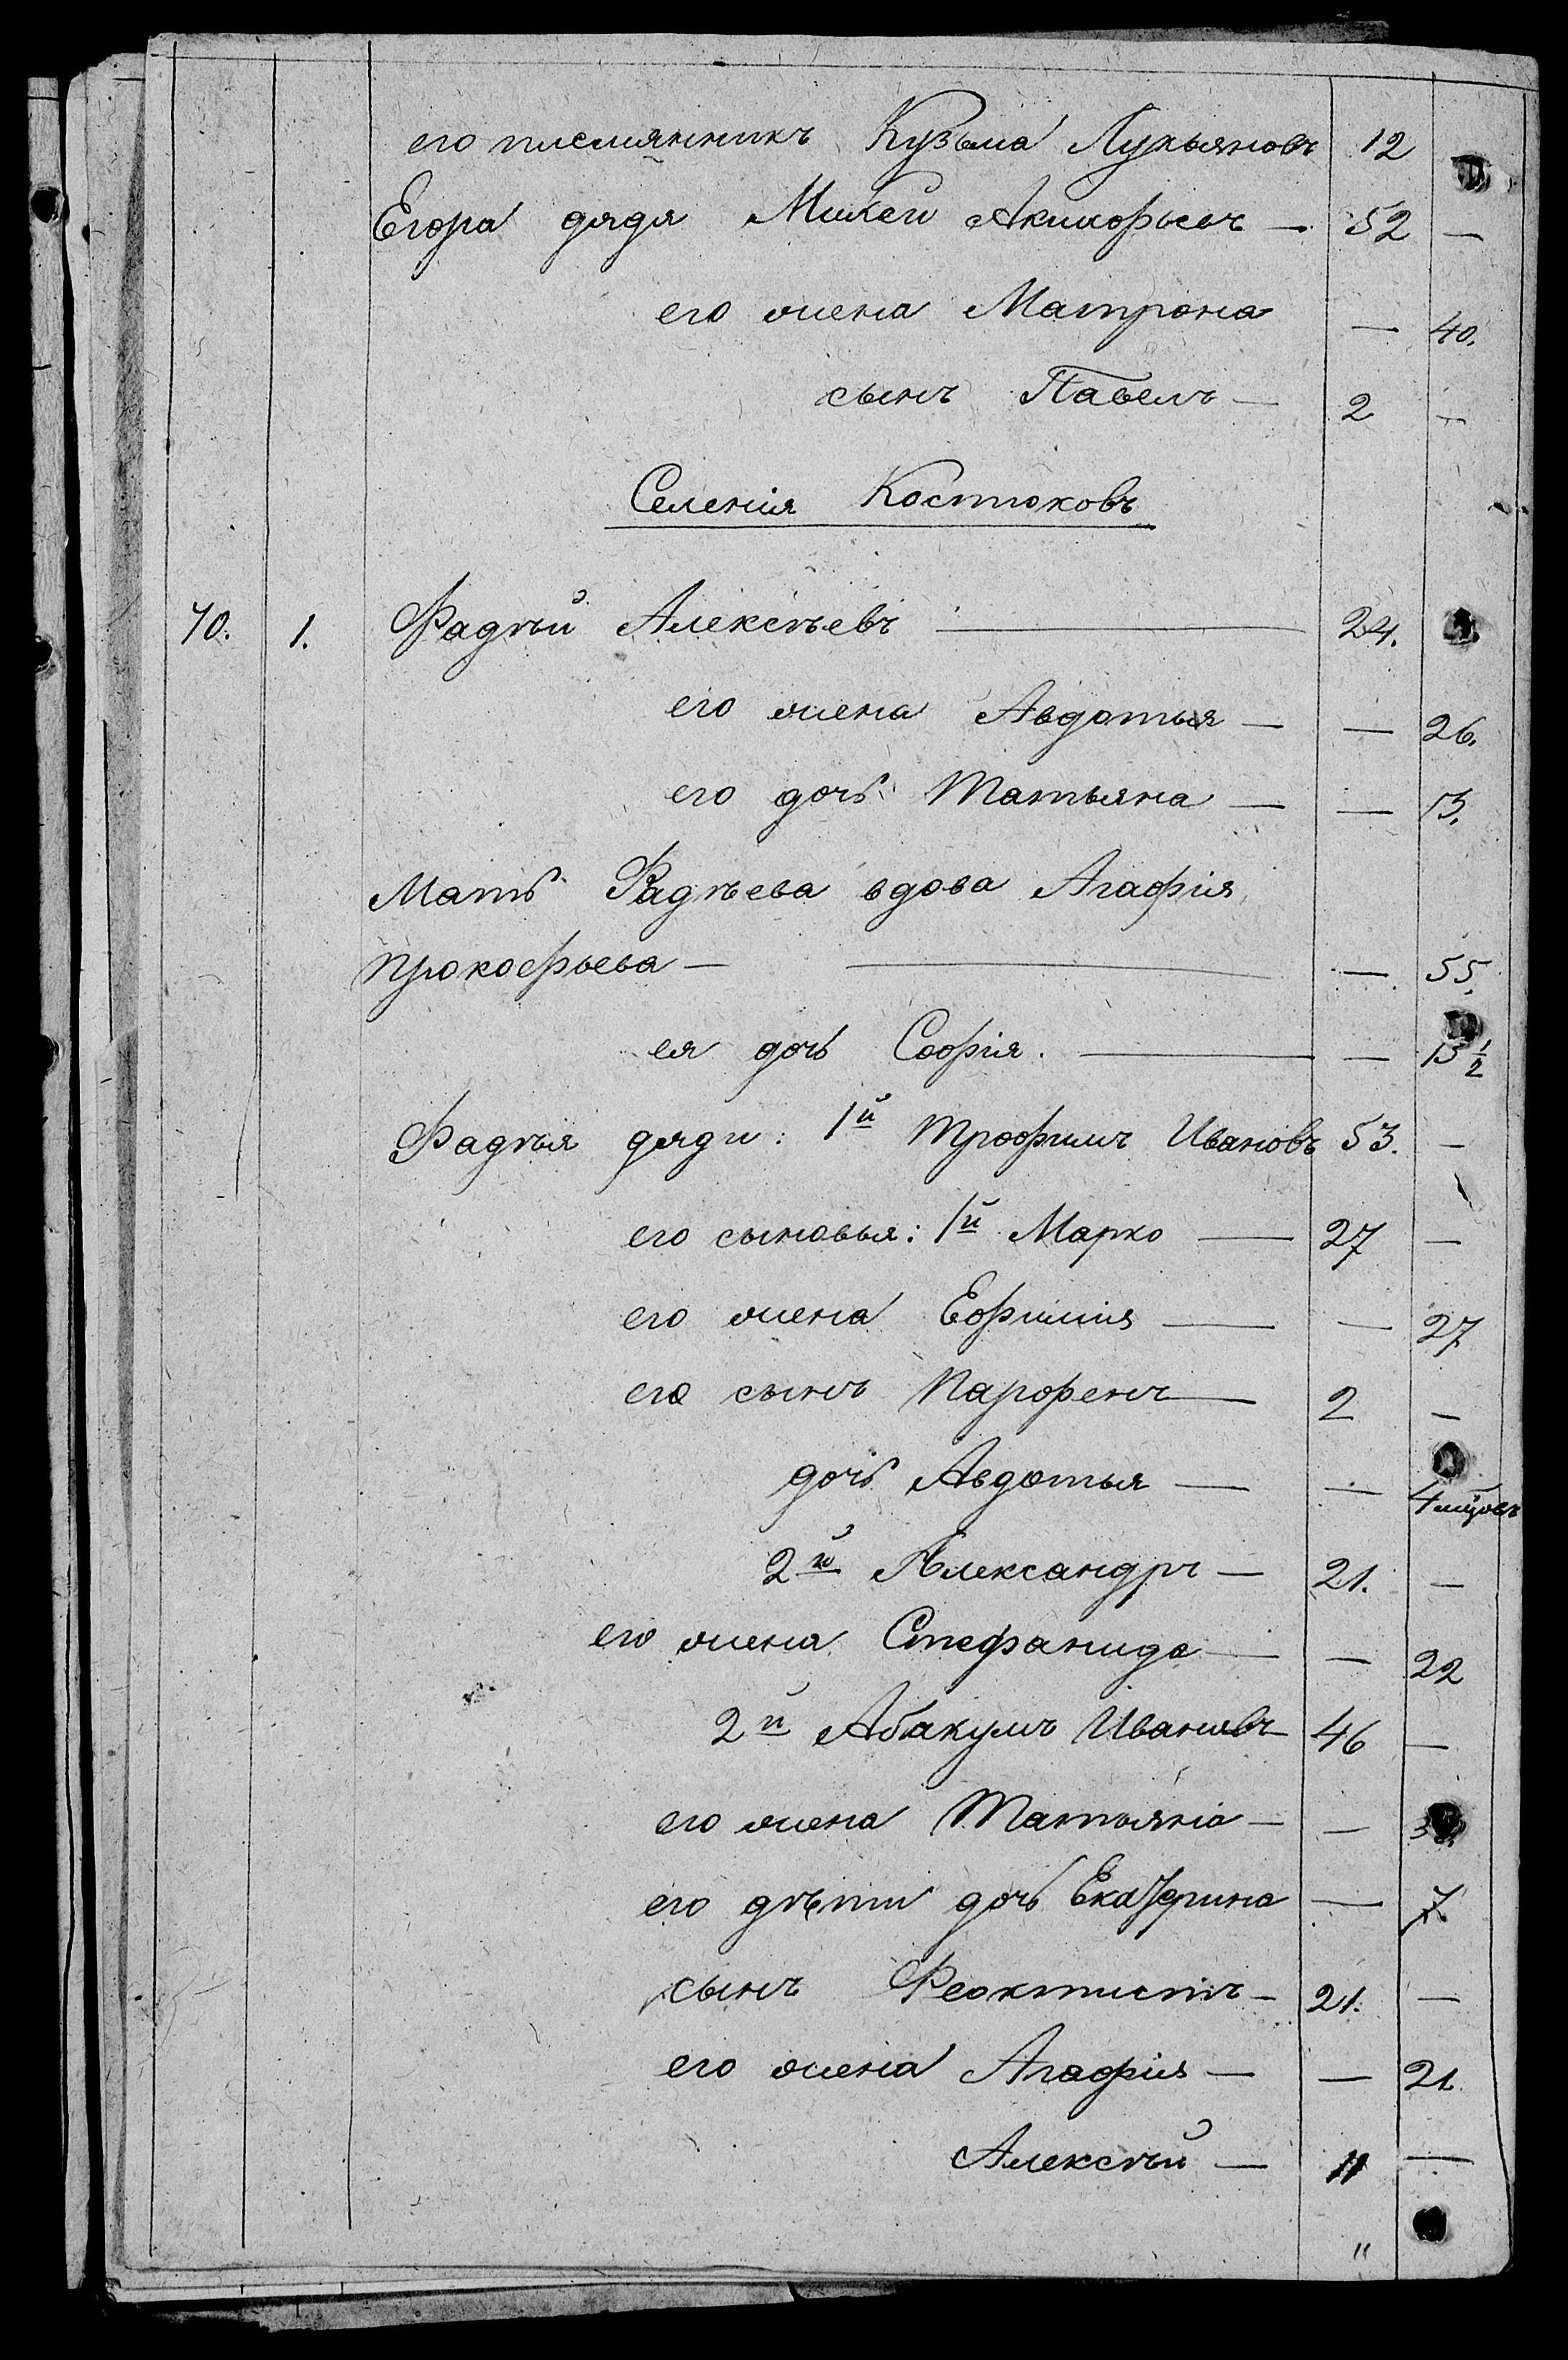 его племянникъ Кузьма Лукьяновъ 12
Егора дядя Микей Акинфьевъ — 52 —
его жена Матрона — 40.
сынъ Павелъ — 2 —
Селенія Костюковъ
70. 1. Фадѣй Алексѣевъ — 24.
его жена Авдотья — — 26.
его дочь Татьяна — — 13.
Мать Фадѣева вдова Агафія
Прокофьева — — — 55.
ея дочь Софія. — — 13 1/2
Фадѣя дяди: 1й Трофимъ Ивановъ 53. —
его сыновья: 1й Марко — 27 —
его жена Ефимія — — 27
его сынъ Парфенъ — 2 —
дочь Авдотья — — 4 мцовъ
2й Александръ — 21. —
его жена Стефанида — — 22
2й Абакумъ Ивановъ 46 —
его жена Татьяна — —
его дѣти дочь Екатерина — 7
сынъ Феоктистъ — 21. —
его жена Агафія — — 21.
Алексѣй — 11 —
"